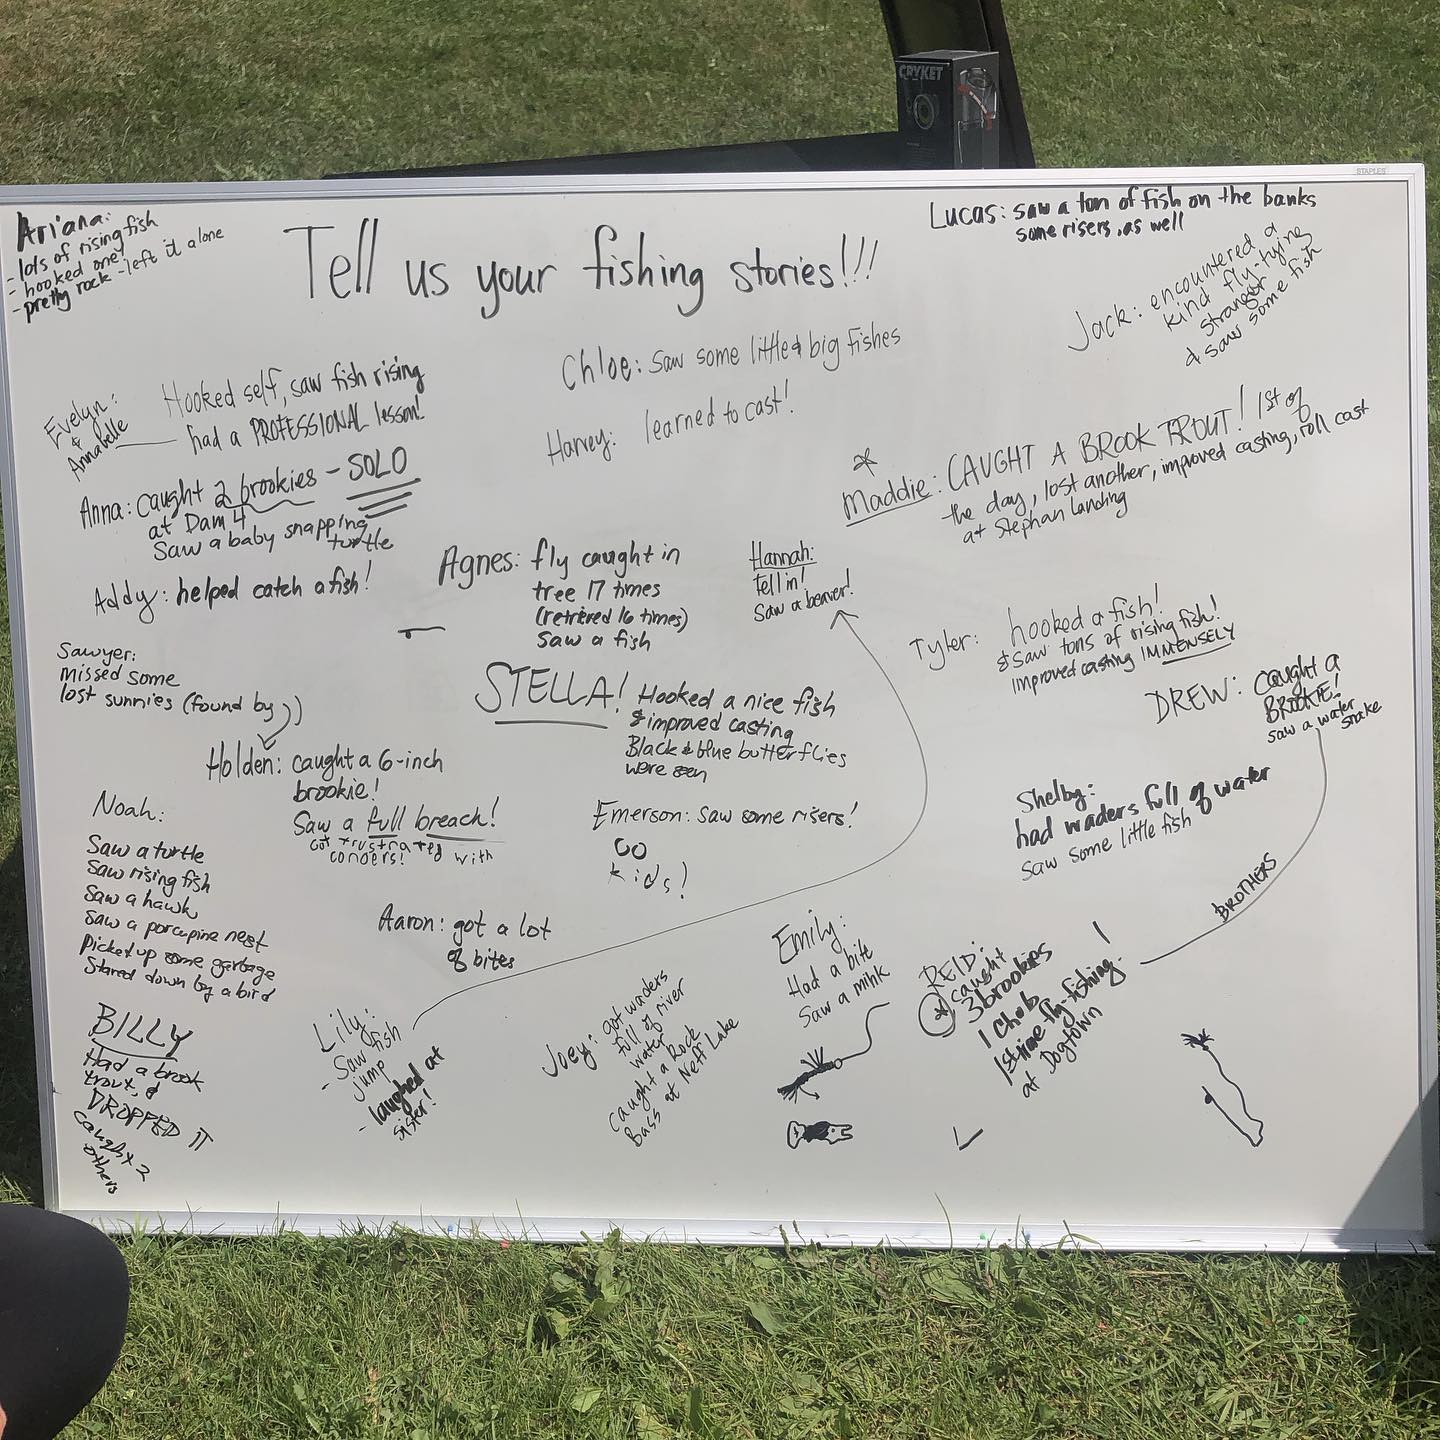 CRYKET
STAPLES
Ariana:
- lots of rising fish
- hooked one!
- pretty rock - left it alone
Tell us your fishing stories!!!
Lucas: saw a ton of fish on the banks
some risers, as well
Jack: encountered a
kind fly-tying
stranger
& saw some fish
Evelyn:
&
Annabelle
Hooked self, saw fish rising
had a PROFESSIONAL lesson!
Chloe: Saw some little & big fishes
Harvey: learned to cast!
Anna: caught 2 brookies - SOLO
at Dam 4
Saw a baby snapping
turtle
Maddie: CAUGHT A BROOK TROUT! 1st of
the day, lost another, improved casting, roll cast
at Stephan Landing
Addy: helped catch a fish!
Agnes: fly caught in
tree 17 times
(retrieved 16 times)
Saw a fish
Hannah:
Fell in!
Saw a beaver!
Tyler: hooked a fish!
& saw tons of rising fish!
improved casting IMMENSELY
Sawyer:
missed some
lost sunnies (found by)
Holden: caught a 6-inch
brookie!
Saw a full breach!
got frustrated with
conoers!
STELLA! Hooked a nice fish
& improved casting
Black & blue butterflies
were seen
DREW: caught a
BROOKIE!
saw a water
snake
Emerson: saw some risers!
kids!
Shelby:
had waders full of water
saw some little fish
Noah:
Saw a turtle
Saw rising fish
Saw a hawk
Saw a porcupine nest
Picked up some garbage
Stared down by a bird
Aaron: got a lot
of bites
BROTHERS
Emily:
Had a bite
Saw a mink
REID:
caught
3 brookies
1 chub
1st time fly-fishing!
at Dogtown
BILLY
Had a brook
trout, &
DROPPED IT
caught 2
others
Lily:
- Saw fish
jump
- laughed at
sister!
Joey: got waders
full of river
water
caught a Rock
Bass at Neff Lake